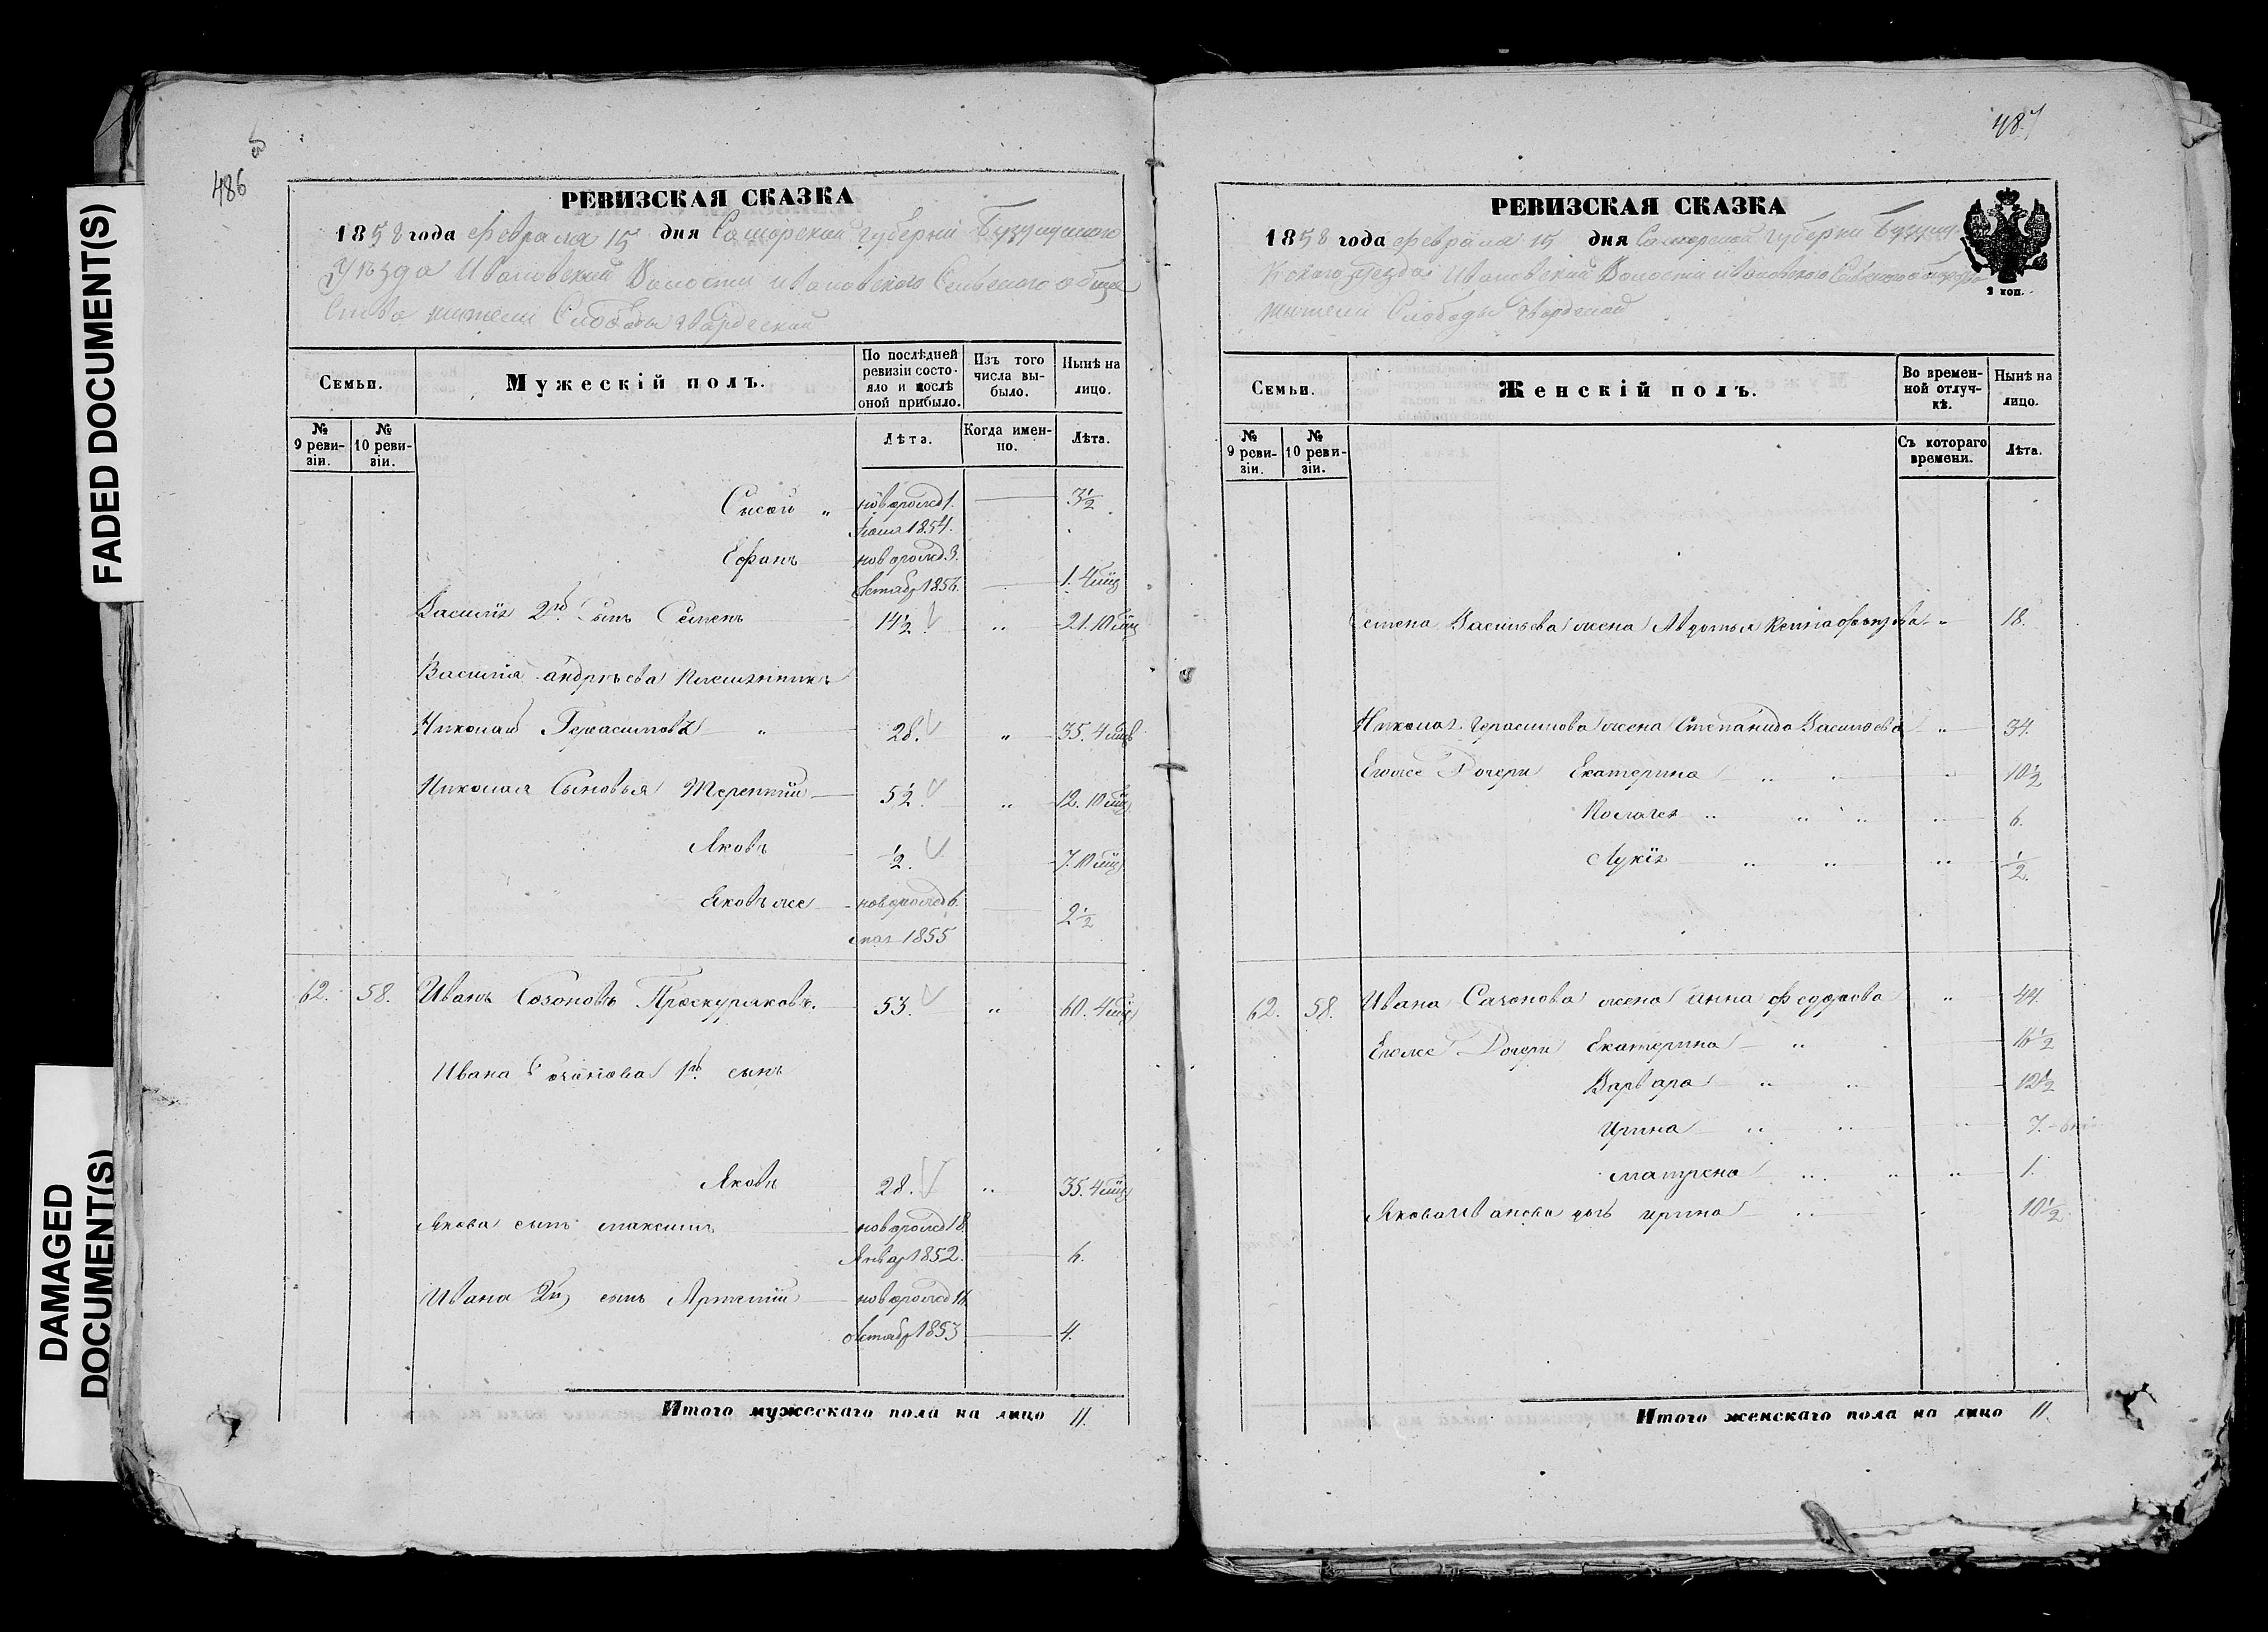 FADED DOCUMENT(S)
DAMAGED
DOCUMENT(S)
486
РЕВИЗСКАЯ СКАЗКА
1858 года февраля 15 дня Самарской губернiи Бузулукского
Уѣзда Ивановской Волости Ивановского Сельского обще
ства жители Слободы Гвардеской
Семьи.
Мужескiй полъ.
По послѣдней ревизiи состояло и послѣ оной прибыло.
Изъ того числа выбыло.
Нынѣ на лицо.
№ 9 ревизiи.
№ 10 ревизiи.
Лѣта.
Когда именно.
Лѣта.
Сысой " новорожд 1. 3½
1854.
новорожд 3.
Октябр 1856. 1. 4 мц
Василiя 2й Сынъ Семенъ 14½ " 21. 10 мц
Василiя андрѣева племянникъ
Николай Герасимовъ " 28. " 35. 4 мц
Николая Сыновья Терентiй 5½ " 12. 10 мц
Яковъ ½. 7. 10 мц
Яковъ же новорожд 6. 2½
1855
62. 58. Иванъ Созоновъ Проскуряковъ. 53. " 60. 4 мц
Ивана 1й сынъ
Яковъ 28. " 35. 4 мц
Якова сынъ максимъ новорожд 18.
Январ 1852. 6.
Ивана 2й сынъ Артемiй новорожд 16.
октябр 1853 4.
Итого мужескаго пола на лицо 11.
487
РЕВИЗСКАЯ СКАЗКА
1858 года февраля 15 дня Самарской губернiи Бузулу
кского уѣзда Ивановской Волости ивановского Сельского общества
жители Слободы Гвардеской
2 коп.
Семьи.
Женскiй полъ.
Во временной отлучкѣ.
Нынѣ на лицо.
№ 9 ревизiи.
№ 10 ревизiи.
Съ котораго времени.
Лѣта.
Семена Васильева жена Авдотья " 18.
Николая Герасимова жена Степанида Васильева " 34.
Егоже Дочери Екатерина " " 10½
Пелагея " " " " 6.
" " " ½.
62. 58. Ивана Сазонова жена Анна федорова " 44.
Егоже Дочери Екатерина " 16½
Варвара " " 12½
Ирина " " " 7.
матрена " " " 1.
Якова Иванова дочь ирина " 10½
Итого женскаго пола на лицо 11.